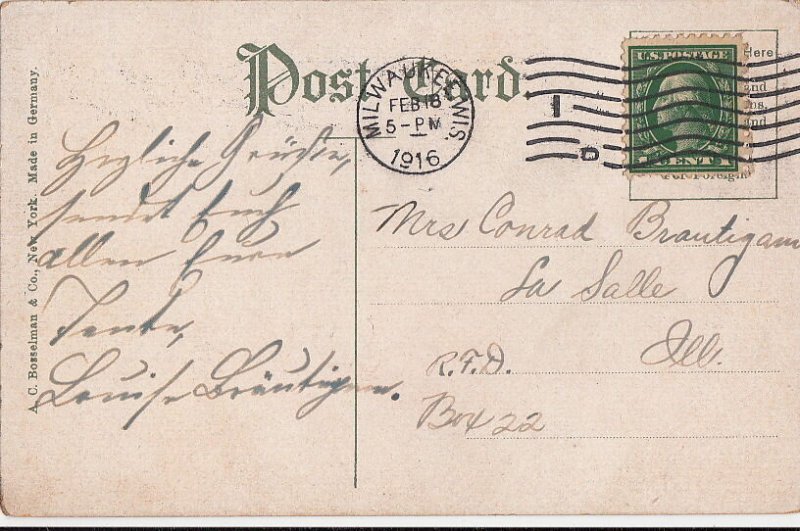 Post Card.
MILWAUKEE, WIS.
FEB 18
5-PM
1916
Here
U.S. POSTAGE
and
and
For Foreign
I
D
A. C. Bosselman & Co., New York. Made in Germany.
Herzliche Grüße,
sendet Euch
allen Eure
Tante,
Louise Bräutigam.
Mrs Conrad Brautigam
La Salle
Ill.
R.F.D.
Box 22